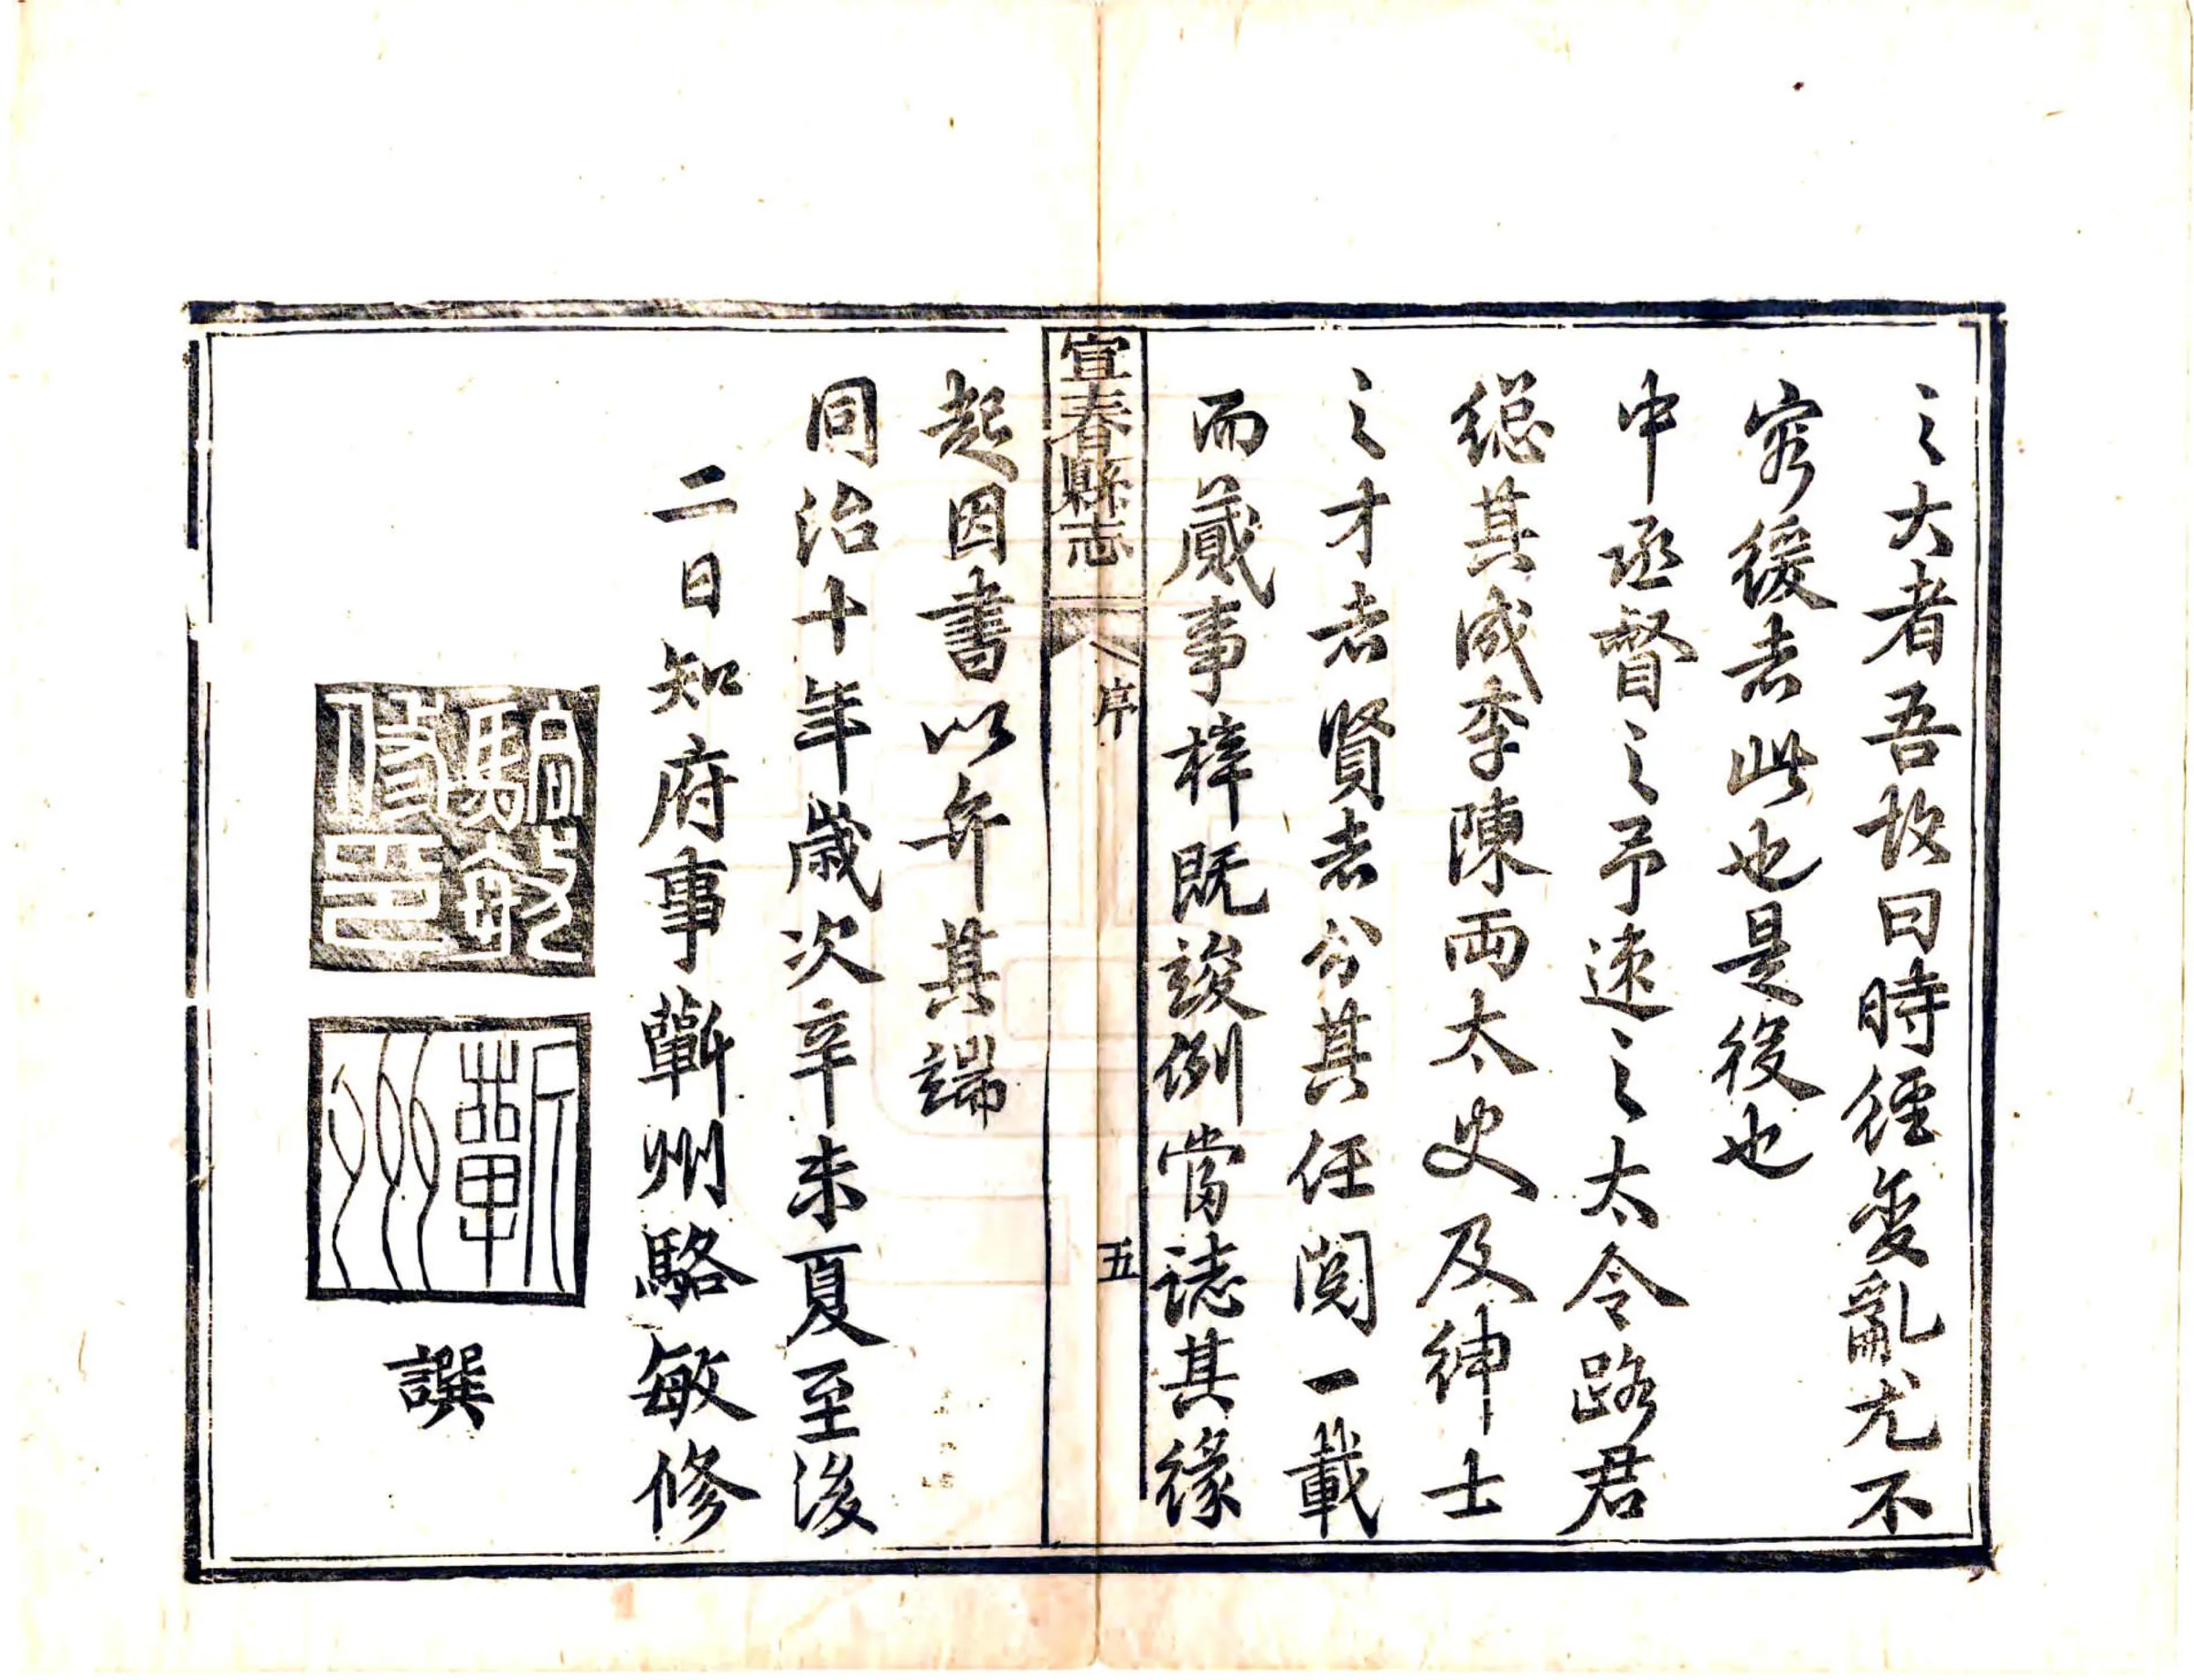 之大者吾故曰時經變亂尤不
容緩者此也是後也
中丞督之予速之太令路君
總其成李陳兩太史及紳士
之才者老賢者分其任閱一載
而蕆事梓既竣例當誌其緣
宜春縣志
序
五
起因書以弁其端
同治十年歲次辛未夏至後
二日知府事蘄州駱敏修
駱敏
修印
蘄
州
譔